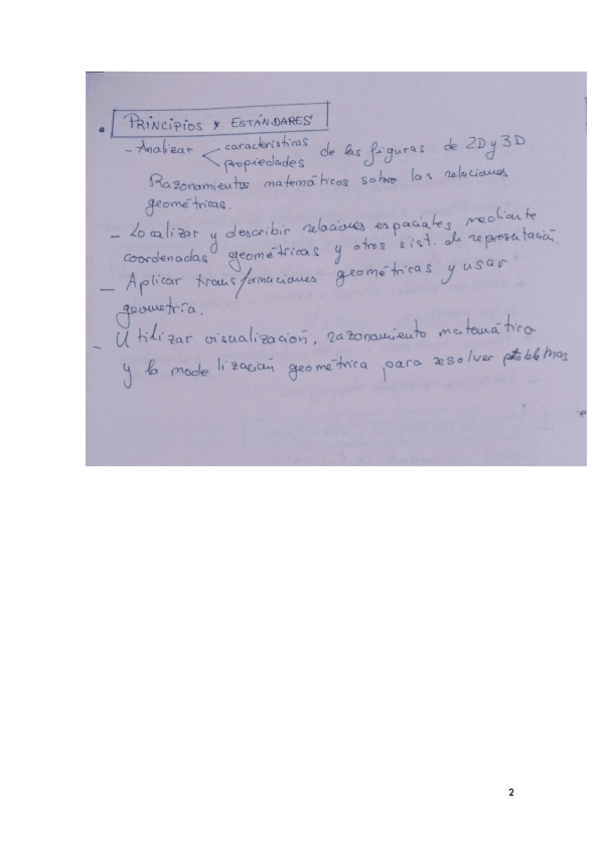 • PRINCIPIOS Y ESTÁNDARES
- Analizar < características
propiedades
de las figuras de 2D y 3D
Razonamientos matemáticos sobre las relaciones
geométricas.
- Localizar y describir relaciones espaciales mediante
coordenadas geométricas y otros sist. de representación.
- Aplicar transformaciones geométricas y usar
geometría.
- Utilizar visualización, razonamiento matemático
y la modelización geométrica para resolver problemas
2